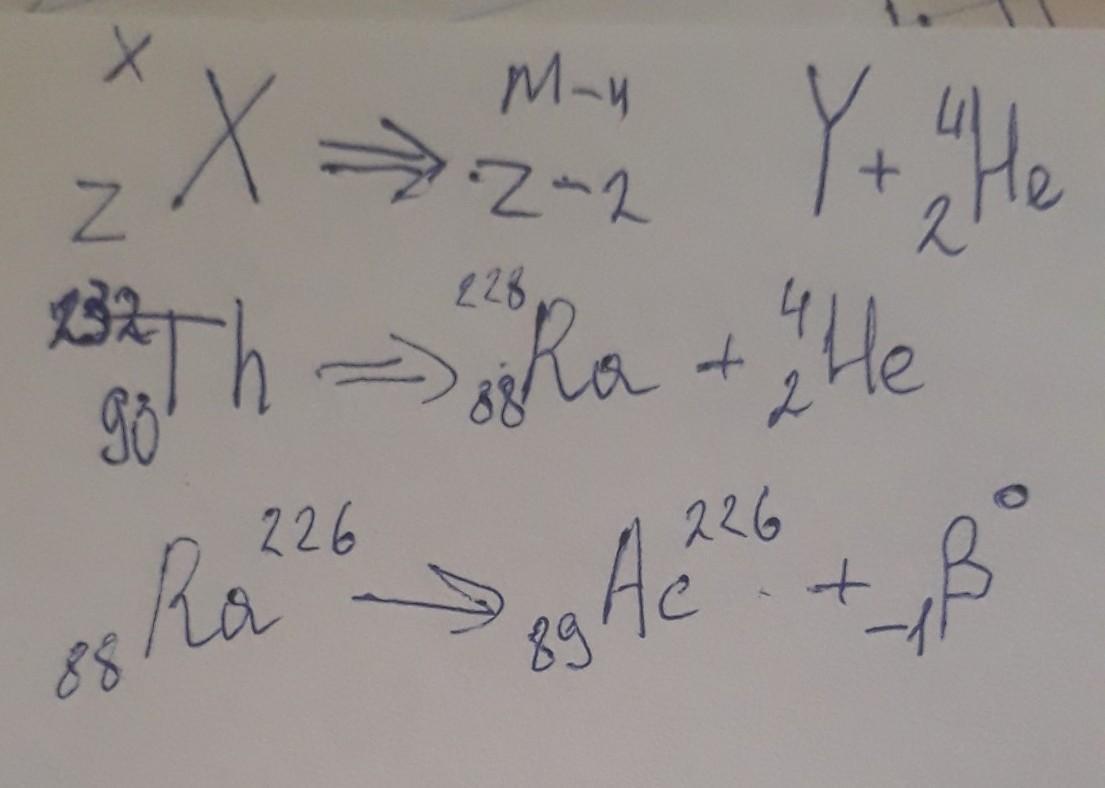 ˣ_Z X ⇒ ᴹ⁻⁴_Z-2 Y + ⁴₂He
²³²₉₀Th ⇒ ²²⁸₈₈Ra + ⁴₂He
₈₈Ra²²⁶ → ₈₉Ac²²⁶ + ₋₁β⁰